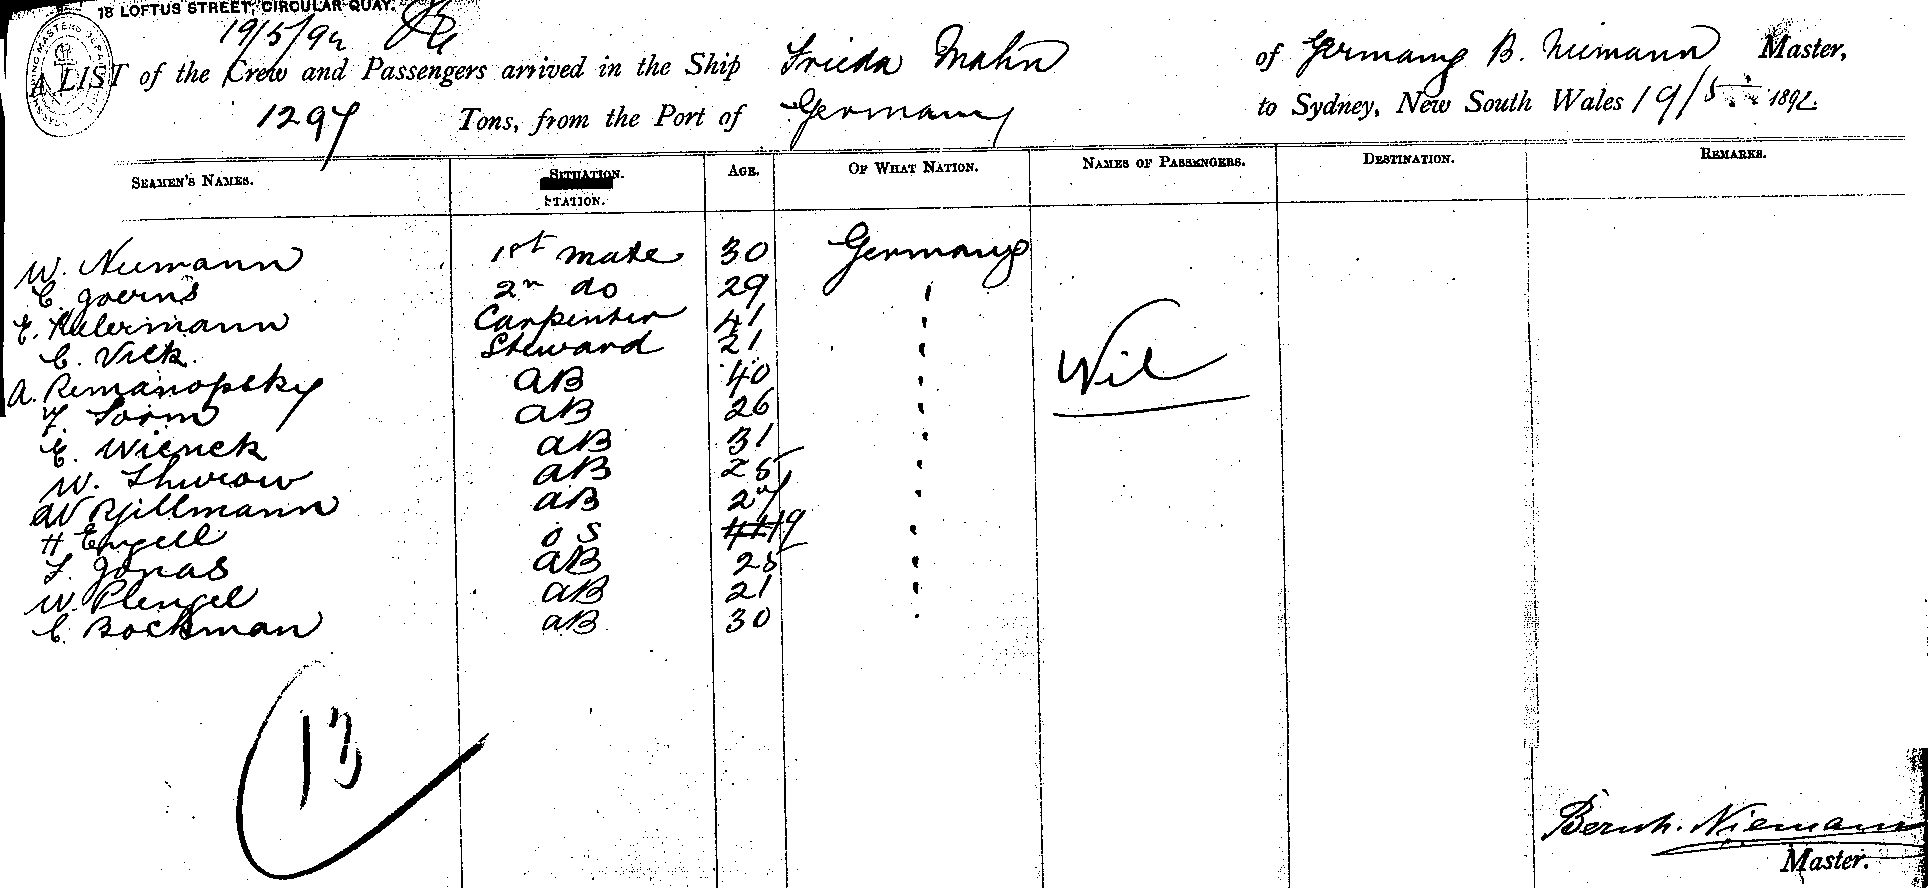 18 LOFTUS STREET, CIRCULAR QUAY.
19/5/92
A LIST of the Crew and Passengers arrived in the Ship Frieda Mahn of Germany B. Niemann Master,
1297 Tons, from the Port of Germany to Sydney, New South Wales 19/5 1892.
SEAMEN'S NAMES. SITUATION. STATION. AGE. OF WHAT NATION. NAMES OF PASSENGERS. DESTINATION. REMARKS.
W. Niemann 1st mate 30 Germany
C. Goerns 2n do 29 "
E. Kulermann Carpenter 41 "
C. Vick. Steward 21 "
A. Remanofsky AB 40 " Nil
F. Sorm AB 26 "
E. Wienck AB 31 "
W. Thurow AB 25 "
W AB 27 "
H Engell OS 19 "
F. Jonas AB 25 "
W. Plengel AB 21 "
C. Bockman AB 30 "
13
Bernh. Niemann
Master.